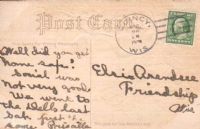 Post Card
QUINCY
WIS
Well did you get
home safe?
Social was
not very good.
We went to
the Dells last
Sat. first
Priscilla
Elsie Arendsee
Friendship
Wis